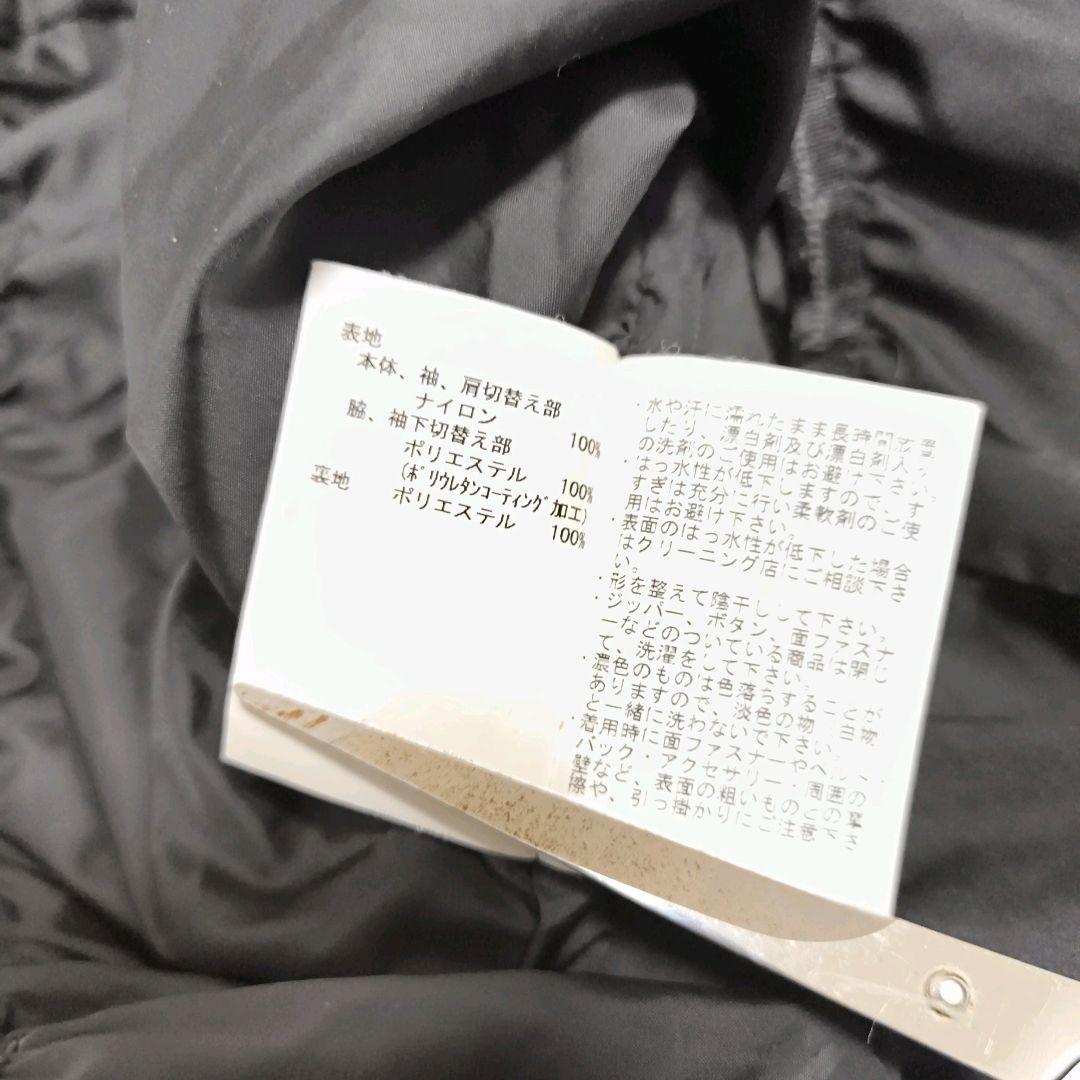 表地
本体、袖、肩切替え部
ナイロン 100%
脇、袖下切替え部
ポリエステル 100%
(ポリウレタンコーティング加工)
裏地 ポリエステル 100%
・水や汗に濡れたまま長時間放置
したり、漂白剤及び漂白剤入り
の洗剤のご使用はお避け下さい。
・はっ水性が低下しますので、す
すぎは充分に行い柔軟剤のご使
用はお避け下さい。
・表面のはっ水性が低下した場合
はクリーニング店にご相談下さ
い。
・形を整えて陰干しして下さい。
・ジッパー、ボタン、面ファスナ
ーなどのついている商品は閉じ
て、洗濯をして下さい。
・濃色のものは色落ちすることが
ありますので、淡色の物、白物
と一緒に洗わないで下さい。
・着用時に面ファスナーやベルト・
バック・アクセサリー・周囲の
壁など、表面の粗いものとの摩
擦や、引っ掛かりにご注意下さ